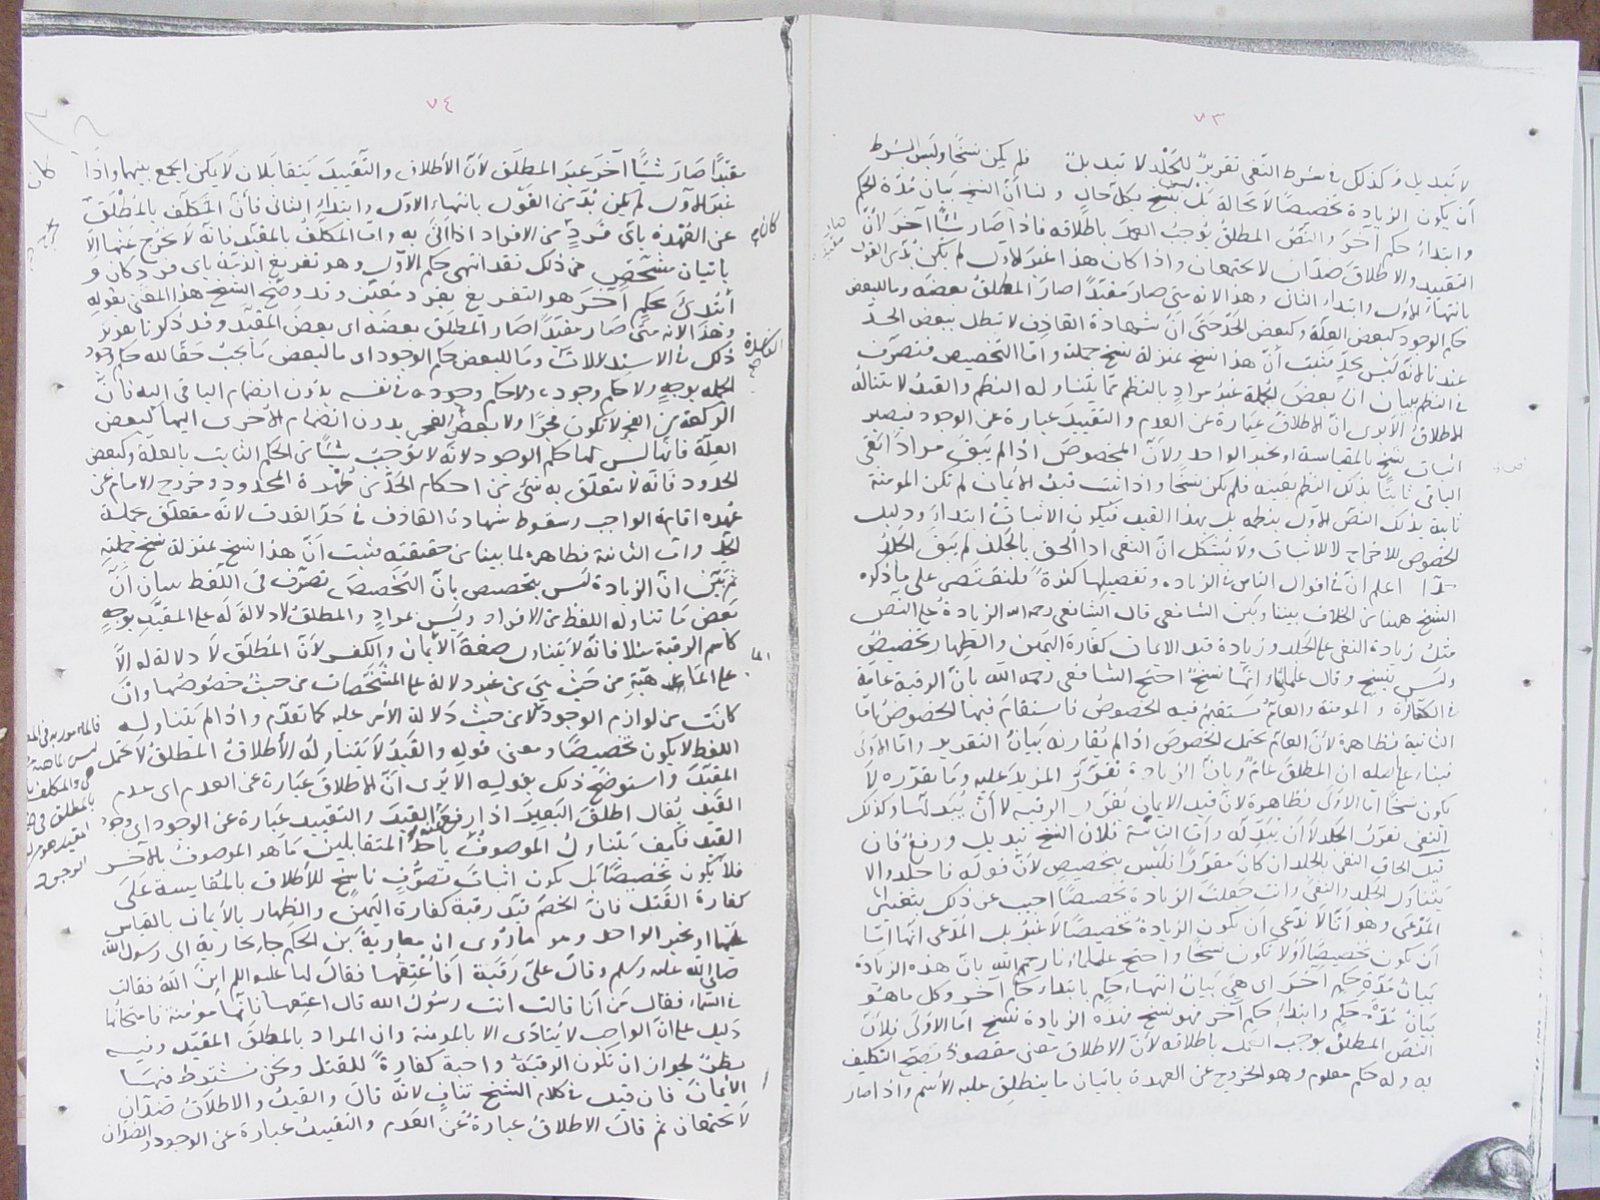 ٧٣
لا تبديل وكذلك في شرط النفي تقرير للجلد لا تبديل فلم يكن نسخا وليس الشرط
أن يكون الزيادة تخصيصا لا محالة بل ليس بنسخ بكل حال ولنا أن النسخ بيان مدة الحكم
وابتداء حكم آخر والنص المطلق يوجب العمل باطلاقه فاذا صار شيئا آخر لأن
التقييد والاطلاق ضدان لا يجتمعان واذا كان هذا غير الأول لم يكن بد من القول
بانتهاء الأول وابتداء الثاني وهذا لانه متى صار مقيدا صار المطلق بعضه وما للبعض
حكم الوجود كبعض العلة وكبعض الحد حتى أن شهادة القاذف لا تبطل ببعض الحد
عندنا لانه ليس بحد فثبت أن هذا نسخ بمنزلة نسخ جملته واما التخصيص فتصرف
في النظم ببيان ان بعض الجملة غير مراد بالنظم مما يتناوله النظم والقيد لا يتناوله
الاطلاق ألا يرى ان الاطلاق عبارة عن العدم والتقييد عبارة عن الوجود فيصير
اثبات نسخ بالمقايسة او بخبر الواحد ولأن المخصوص اذا لم يبق مرادا بقي
الباقي ثابتا بذلك النظم بعينه فلم يكن نسخا واذا ثبت قيد الأيمان لم تكن المومنة
ثابتة بذلك النص الأول بنظمه بل بهذا القيد فيكون الاثبات ابتداء ودليل
الخصوص للاخراج لا للاثبات ولا يشكل ان النفي اذا الحق بالجلد لم يبق الجلد
حدا اعلم ان في اقوال الناس في الزيادة وتفصيلها كثرة فلنقتصر على ما ذكره
الشيخ ههنا من الخلاف بيننا وبين الشافعي قال الشافعي رحمه الله الزيادة على النص
مثل زيادة النفي على الجلد وزيادة قيد الايمان كفارة اليمين والظهار تخصيص
وليس بنسخ وقال علماؤنا انها نسخ احتج الشافعي رحمه الله بأن الرقبة عامة
في الكفارة والمومنة والعام يستقيم فيه الخصوص فاستقام فيها الخصوص اما
الثانية فظاهرة لأن العام يحتمل الخصوص اذا لم يقارنه بيان التقرير واما الاولى
فبناء على اصله ان المطلق عام وبأن الزيادة تقرر المزيد عليه وما يقرره لا
يكون نسخا اما الاولى فظاهرة لأن قيد الايمان يقرر الرقبة لا أن يبدلها وكذلك
النفي يقرر الجلد لا أن يبدله وأما الثانية فلان النسخ تبديل ورفع فان
قيل الحاق النفي بالجلد ان كان مقررا فليس بتخصيص لأن قوله فاجلدوا لا
يتناول الجلد والنفي وانت جعلت الزيادة تخصيصا اجيب عن ذلك بتغيير
المدعى وهو انا لا ندعي أن تكون الزيادة تخصيصا لا غير بل المدعى انها اما
أن يكون تخصيصا أو لا تكون نسخا واحتج علماؤنا رحمهم الله بأن هذه الزيادة
بيان مدة حكم آخر اي هي بيان انتهاء حكم بابتداء حكم آخر وكل ما هو
بيان مدة حكم وابتداء حكم آخر فهو نسخ فهذه الزيادة نسخ اما الاولى فلأن
النص المطلق يوجب العمل باطلاقه لأن الاطلاق معنى مقصود يصح التكليف
به وله حكم معلوم وهو الخروج عن العهدة باتيان ما ينطلق عليه الاسم واذا صار
٧٤
مقيدا صار شيئا آخر غير المطلق لأن الأطلاق والتقييد يتقابلان لا يمكن الجمع بينهما واذا
غير الأول لم يكن بد من القول بانتهاء الأول وابتداء الثاني فأن المكلف بالمطلق
عن العهدة باي فرد من الافراد اذا اتى به وان المكلف بالمقيد فانه لا يخرج عنها الا
باتيان مشخص فمن ذلك فقد انتهى حكم الأول وهو تفريغ الذمة باي فرد كان و
ابتدئ بحكم آخر هو التفريغ بفرد معين وقد وضح الشيخ هذا المعنى بقوله
وهذا لانه متى صار مقيدا صار المطلق بعضه اي بعض المقيد وقد ذكرنا تقرير
ذلك في الاستدلالات وما للبعض حكم الوجود اي ما لبعض ما يجب حقا لله حكم وجود
الجملة بوجه ولا حكم وجوده ولا حكم وجوده في نفسه بدون انضمام الباقي اليه فأن
الركعة من الفجر لا تكون فجرا ولا بعض الفجر بدون انضمام الاخرى اليها كبعض
العلة فانها ليس لها حكم الوجود لانه لا توجب شيئا من الحكم الثابت بالعلة وكبعض
الحدود فانه لا يتعلق به شئ من احكام الحد من عهدة المحدود وخروج الامام عن
عهدة اقامة الواجب وسقوط شهادة القاذف في حد القذف لانه متعلق بجملة
الحد واما الثانية فظاهرة لما بينا من حقيقته فثبت أن هذا نسخ بمنزلة نسخ جملته
ثم بين ان الزيادة ليس بتخصيص بأن التخصيص تصرف في اللفظ ببيان أن
بعض ما تناوله اللفظ من الافراد وليس بمراد والمطلق لا دلالة له على المقيد بوجه
كاسم الرقبة مثلا فانه لا يتناول صفة الأيمان والكفر لأن المطلق لا دلالة له الا
على الماهية من حيث هي من غير دلالة على المشخصات من حيث خصوصها وان
كانت من لوازم الوجود لا من حيث دلالة الأمر عليه كما تقدم واذا لم يتناوله
اللفظ لا يكون تخصيصا ومعنى قوله والقيد لا يتناوله الأطلاق المطلق لا يحتمل
المقيد واستوضح ذلك بقوله الا يرى أن الاطلاق عبارة عن العدم اي عدم
القيد يقال اطلق البعير اذا رفع عنه القيد والتقييد عبارة عن الوجود اي وجود
القيد فكيف يتناول الموصوف بأحد المتقابلين ما هو الموصوف بالآخر
فلا يكون تخصيصا بل يكون اثبات تصرف ناسخ للأطلاق بالمقايسة على
كفارة القتل فان الخصم قيد رقبة كفارة اليمين والظهار بالأيمان بالقياس
عليها او بخبر الواحد وهو ما روى ان معاوية بن الحكم جاء بجارية الى رسول الله
صلى الله عليه وسلم وقال علي رقبة أفأعتقها فقال لها عليه السلام اين الله فقالت
في السماء فقال من أنا قالت انت رسول الله قال اعتقها فانها مؤمنة فامتحانها
دليل على ان الواجب لا يتادى الا بالمومنة وان المراد بالمطلق المقيد وفيه
نظر لجواز ان تكون الرقبة واجبة كفارة للقتل ونحن نشترط فيها
الأيمان فان قيل في كلام الشيخ تناف لانه قال والقيد والاطلاق ضدان
لا يجتمعان ثم قال الاطلاق عبارة عن العدم والتقييد عبارة عن الوجود والضدان